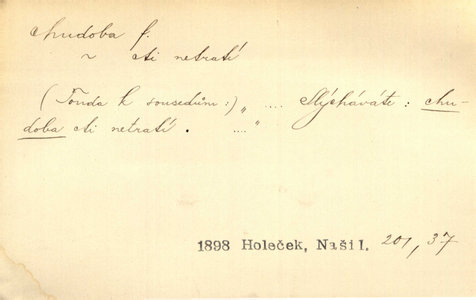 chudoba f.
~ cti netratí
(Tonda k sousedům:) „ .... Slýcháváte: chu-
doba cti netratí. ...."
1898 Holeček, Naši I. 201, 37